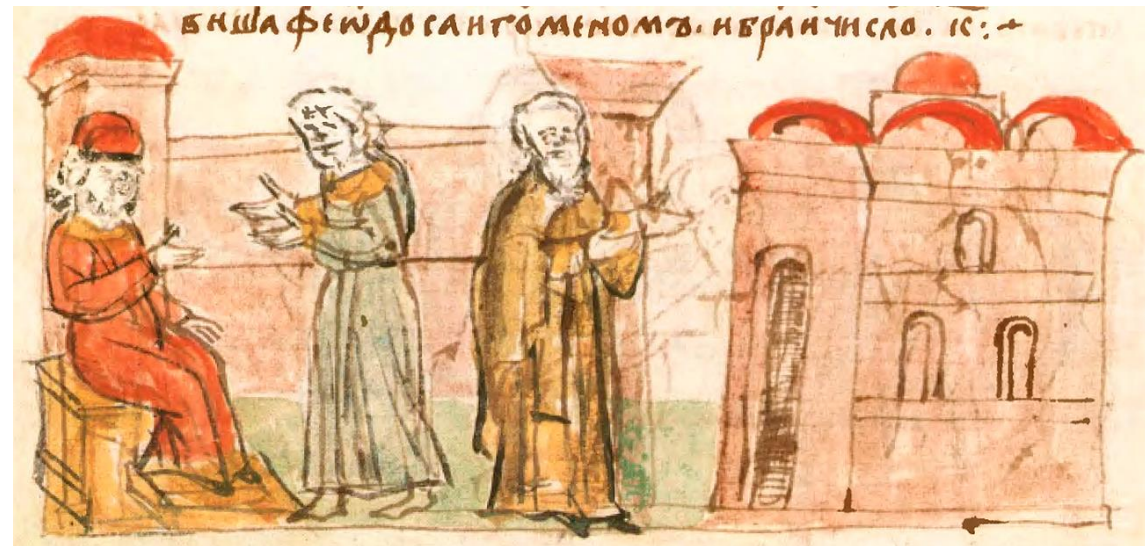 виша феѡдоса игоменомъ. и браи число. к҃:+